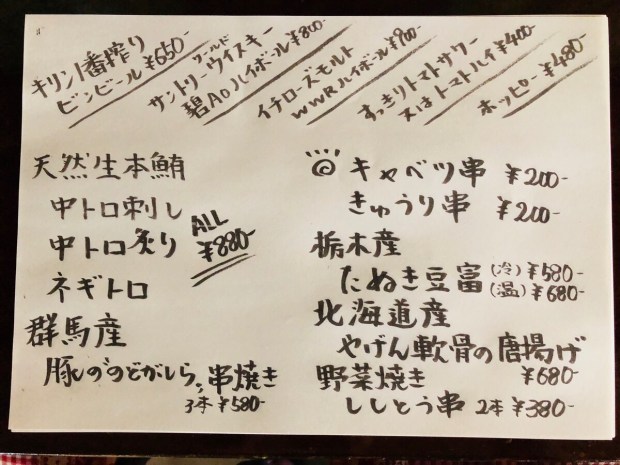 キリン一番搾り
ビンビール ¥650-
サントリーワールドウイスキー
碧Aoハイボール ¥800-
イチローズモルト
WWRハイボール ¥900-
すっきりトマトサワー
又はトマトハイ ¥400-
ホッピー ¥480-
天然生本鮪
中トロ刺し
中トロ炙り
ネギトロ
ALL
¥880-
群馬産
豚の"のどがしら"串焼き
3本 ¥580-
◎ キャベツ串 ¥200-
きゅうり串 ¥200-
栃木産
たぬき豆富 (冷) ¥580-
(温) ¥680-
北海道産
やげん軟骨の唐揚げ
¥680-
野菜焼き
ししとう串 2本 ¥380-